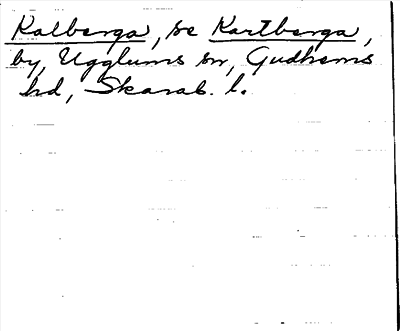 Kalberga, se Kartberga,
by, Ugglums sn, Gudhems
hd, Skarab. l.